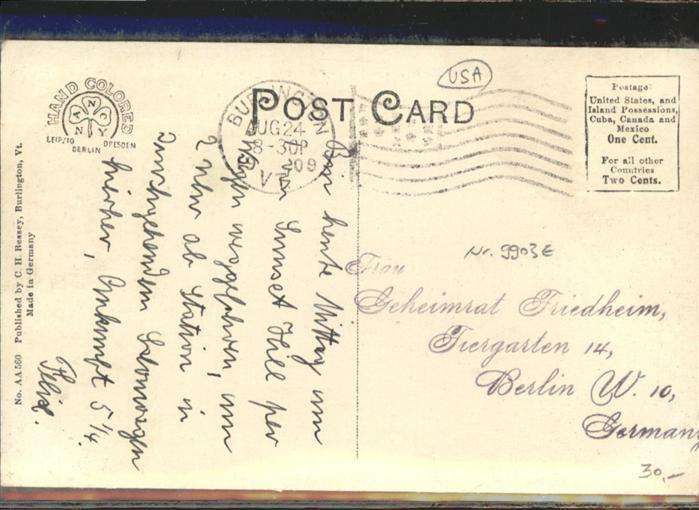 POST CARD
USA
HAND COLORED
ANNO
NY
LEIPZIG DRESDEN
BERLIN
BURLINGTON
AUG 24
8-30P
1909
VT.
Postage
United States, and
Island Possessions,
Cuba, Canada and
Mexico
One Cent.
For all other
Countries
Two Cents.
Bin heute Mittag um
Sunset Hill per
Wagen weggefahren, um
2 Uhr ab Station in
durchgehendem Salonwagen
hierher, Ankunft 5 1/4.
Felix.
Nr. 9903E
Frau
Geheimrat Friedheim,
Tiergarten 14,
Berlin W. 10,
Germany
30,-
No. AA560 Published by C. H. Reasey, Burlington, Vt.
Made in Germany